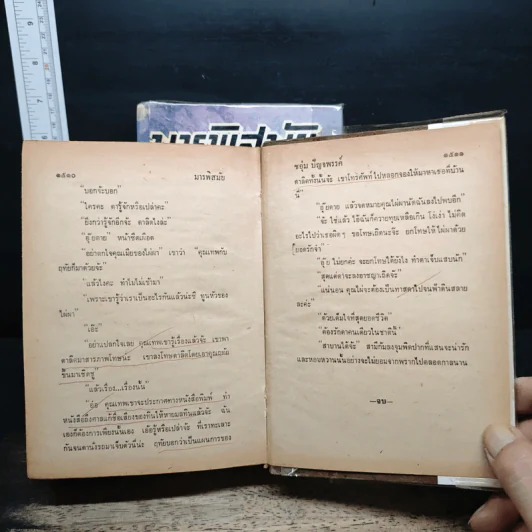 มารพิสมัย
๑๕๑๐ มารพิสมัย
"บอกจ้ะบอก"
"ใครคะ ดารู้จักหรือเปล่าคะ"
"ยิ่งกว่ารู้จักอีกจ้ะ ดาลัดไงล่ะ"
"อุ๊ยตาย หน้าซีดเผือด
"อย่าตกใจคุณเมียของไผ่ผา" เขาว่า "คุณเทพกับ
ฤทัยก็มาด้วยจ้ะ"
"แล้วไงคะ ทำไมไม่เข้ามา"
"เพราะเขารู้ว่าเราเป็นอะไรกันแล้วน่ะซี ทูนหัวของ
ไผ่ผา"
"เอ๊ะ"
"อย่าแปลกใจเลย คุณเทพเขารู้เรื่องแล้วจ้ะ เขาพา
ดาลัดมาสารภาพโทษน่ะ เขาลงโทษดาลัดโดยเอาคุณฤทัย
ขึ้นมาเชิดชู"
"แล้วเรื่อง...เรื่องนั้น"
"อ๋อ คุณเทพเขาจะประกาศทางหนังสือพิมพ์ ทำ
หนังสือถึงศาลแก้ชื่อเสียงของทินให้หายมลทินแล้วจ้ะ ฉัน
เองก็ต้องการเพียงนั้นเอง เธอรู้หรือเปล่าจ๊ะ ที่เราตะเลาะ
กันจนดานั่งรถมาเจ็บตัวนี่น่ะ ฤทัยบอกว่าเป็นแผนการของ
ชอุ่ม ปัญจพรรค์ ๑๕๑๑
ดาลัดทั้งนั้นจ้ะ เขาโทรศัพท์ไปหลอกจองให้มาหาเธอที่บ้าน
นี่"
"อุ๊ยตาย แล้วจดหมายคุณไผ่ผานัดฉันลงไปพบอีก"
"จ้ะ ใช่แล้ว ไอ้ฉันก็ควายทุยเหลือเกิน โง่เง่า ไม่คิด
อะไรไปว่าเธอผิดๆ ขอโทษเถิดนะจ๊ะ ยกโทษให้ ไผ่ผาด้วย
ยอดรักจ๋า"
"อุ๊ย ไม่ยกค่ะ จะยกโทษได้ยังไง ทำดาเจ็บแสบนัก"
"สุดแต่ดาจะลงอาชญาเถิดจ้ะ"
"แน่นอน คุณไผ่จะต้องเป็นทาสดาไปจนฟ้าดินสลาย
ละค่ะ"
"ด้วยเต็มใจที่สุดยอดชีวิต"
"ต้องรักดาคนเดียวในชาตินี้"
"สาบานได้จ้ะ" สามีก้มลงจุมพิตปากที่แสนจะน่ารัก
และหอมหวานนั้นอย่างจะไม่ยอมจากพรากไปตลอดกาลนาน
—จบ—